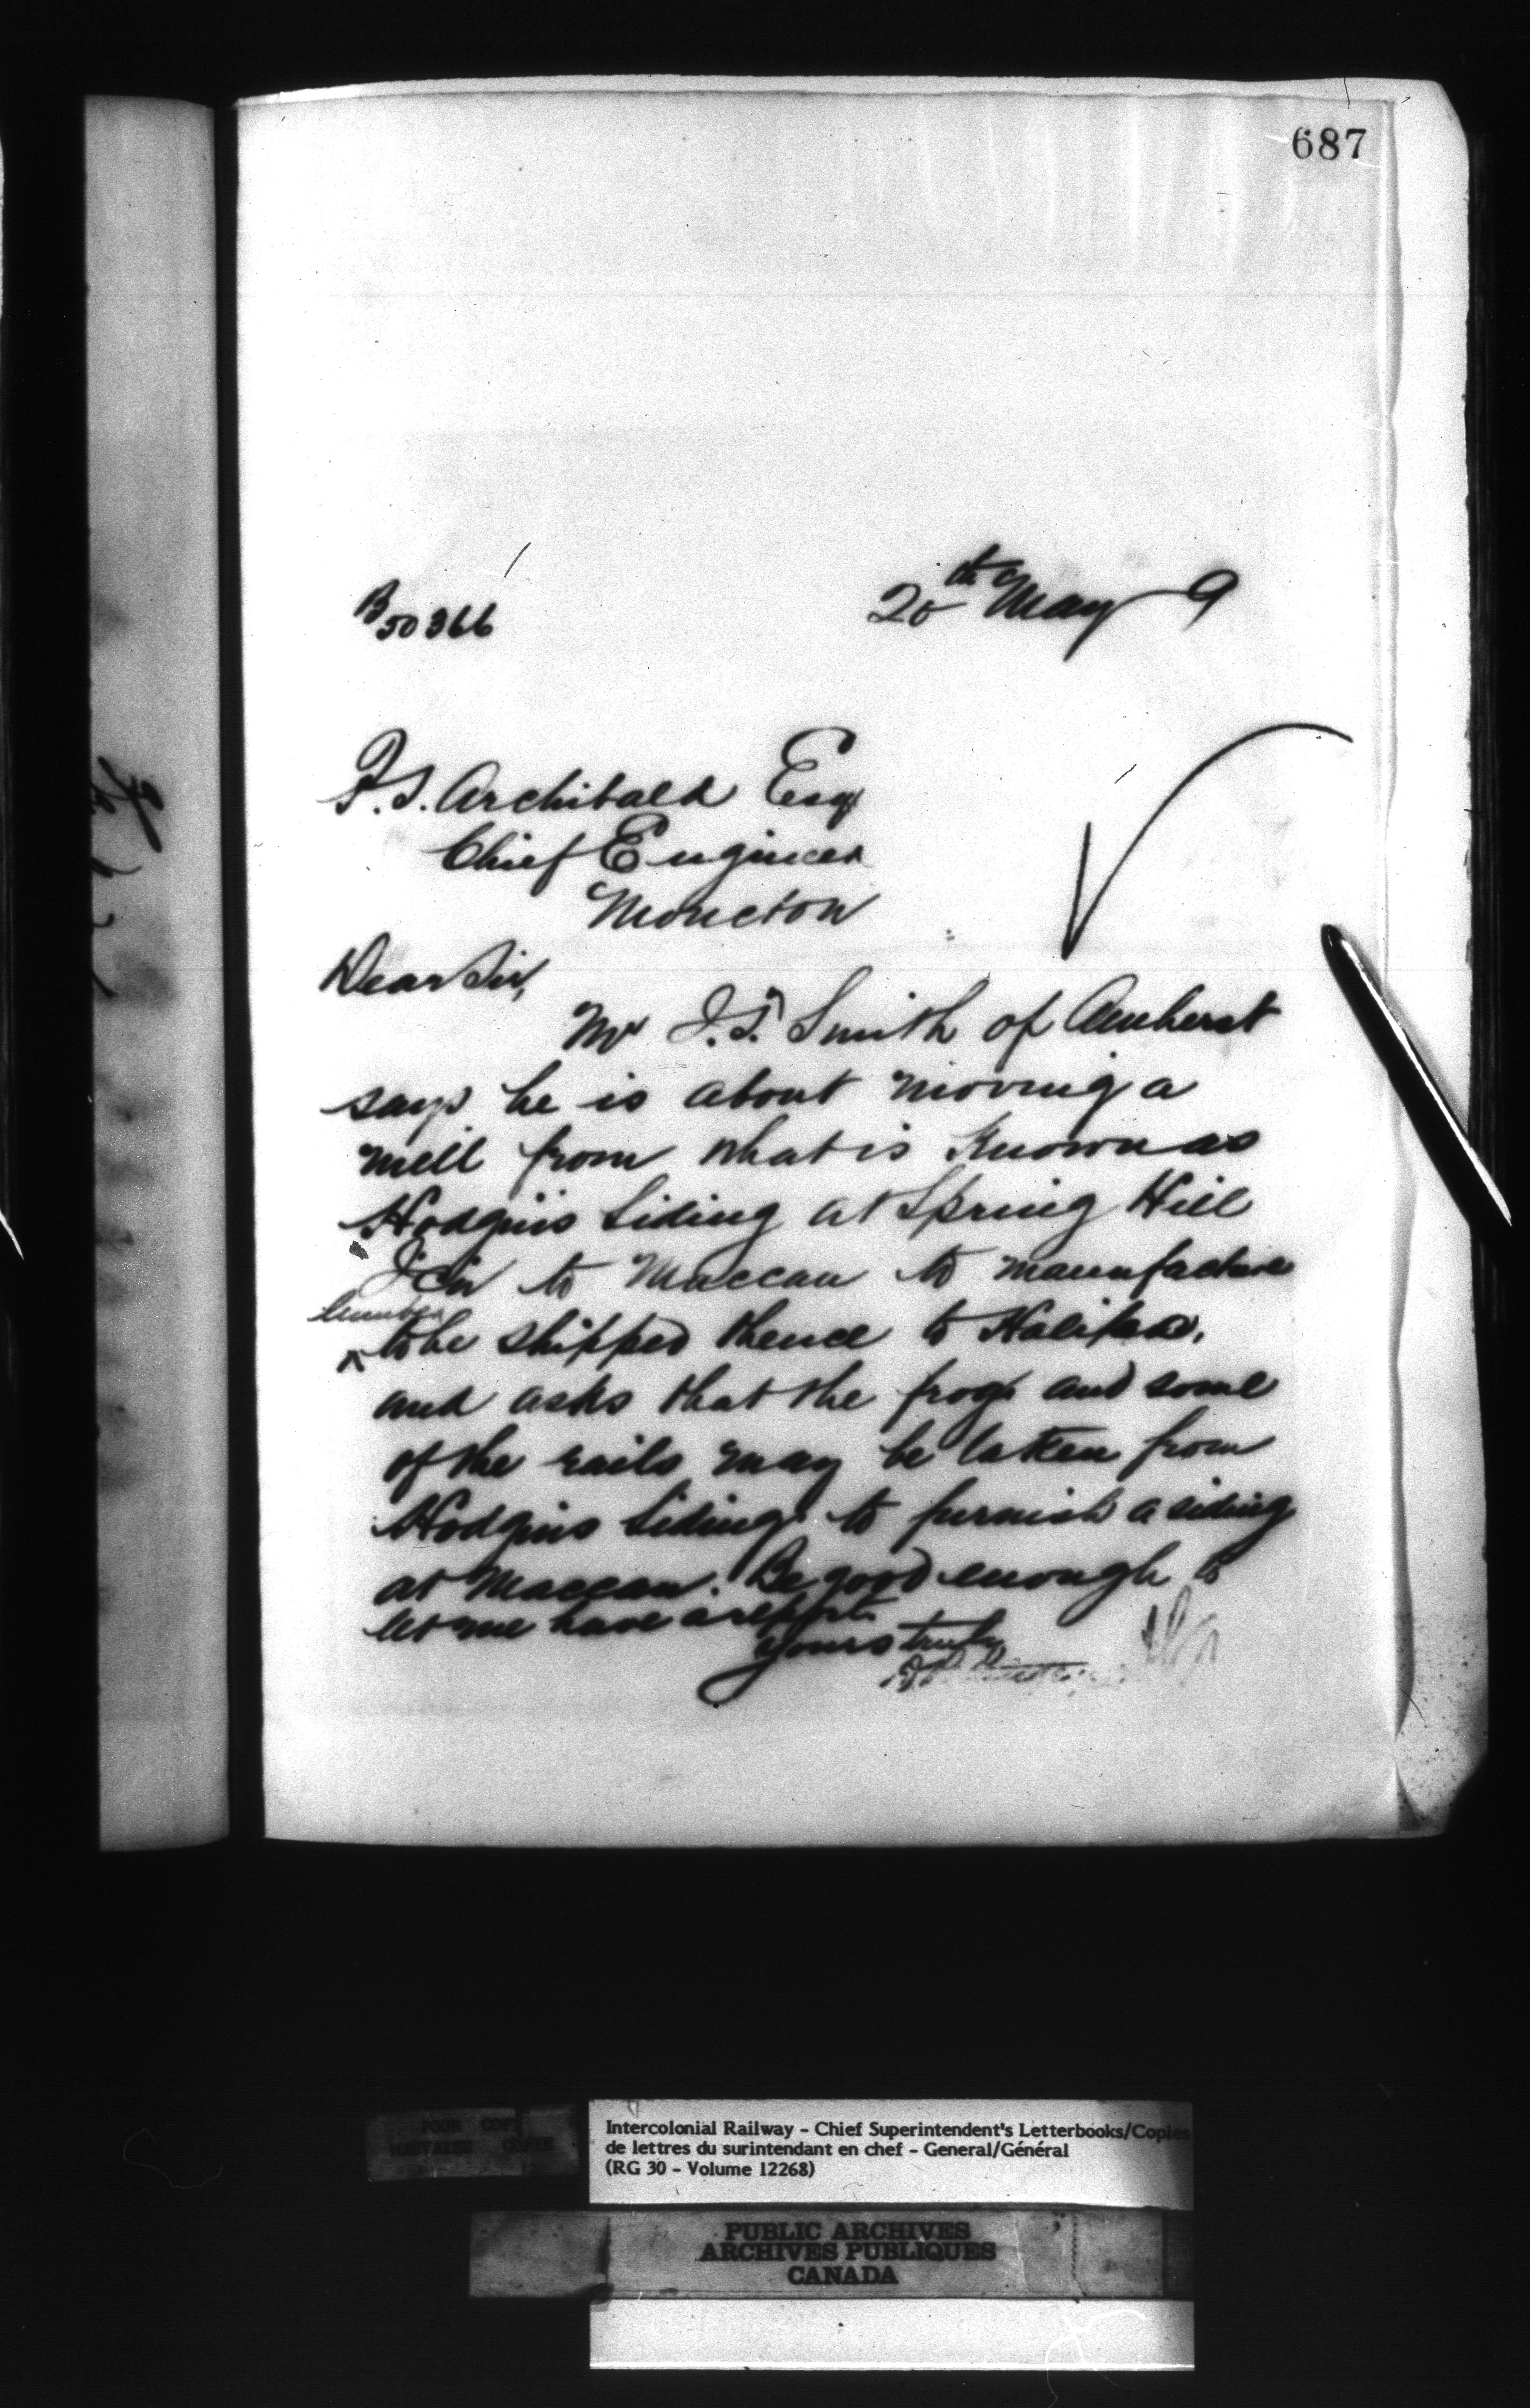 687
B 50366
20th May 9
P. S. Archibald Esq
Chief Engineer
Moncton
Dear Sir,
Mr J. S. Smith of Amherst
says he is about moving a
mill from what is Known as
Hodgins Siding at Spring Hill
Jcn to Maccan to manufacture
lumber
^ to be shipped thence to Halifax,
and asks that the frogs and some
of the rails may be taken from
Hodgins Siding to furnish a siding
at Maccan. Be good enough to
let me have a report.
Yours truly
POOR COPY
MAUVAISE COPIE
Intercolonial Railway - Chief Superintendent's Letterbooks/Copies
de lettres du surintendant en chef - General/Général
(RG 30 - Volume 12268)
PUBLIC ARCHIVES
ARCHIVES PUBLIQUES
CANADA